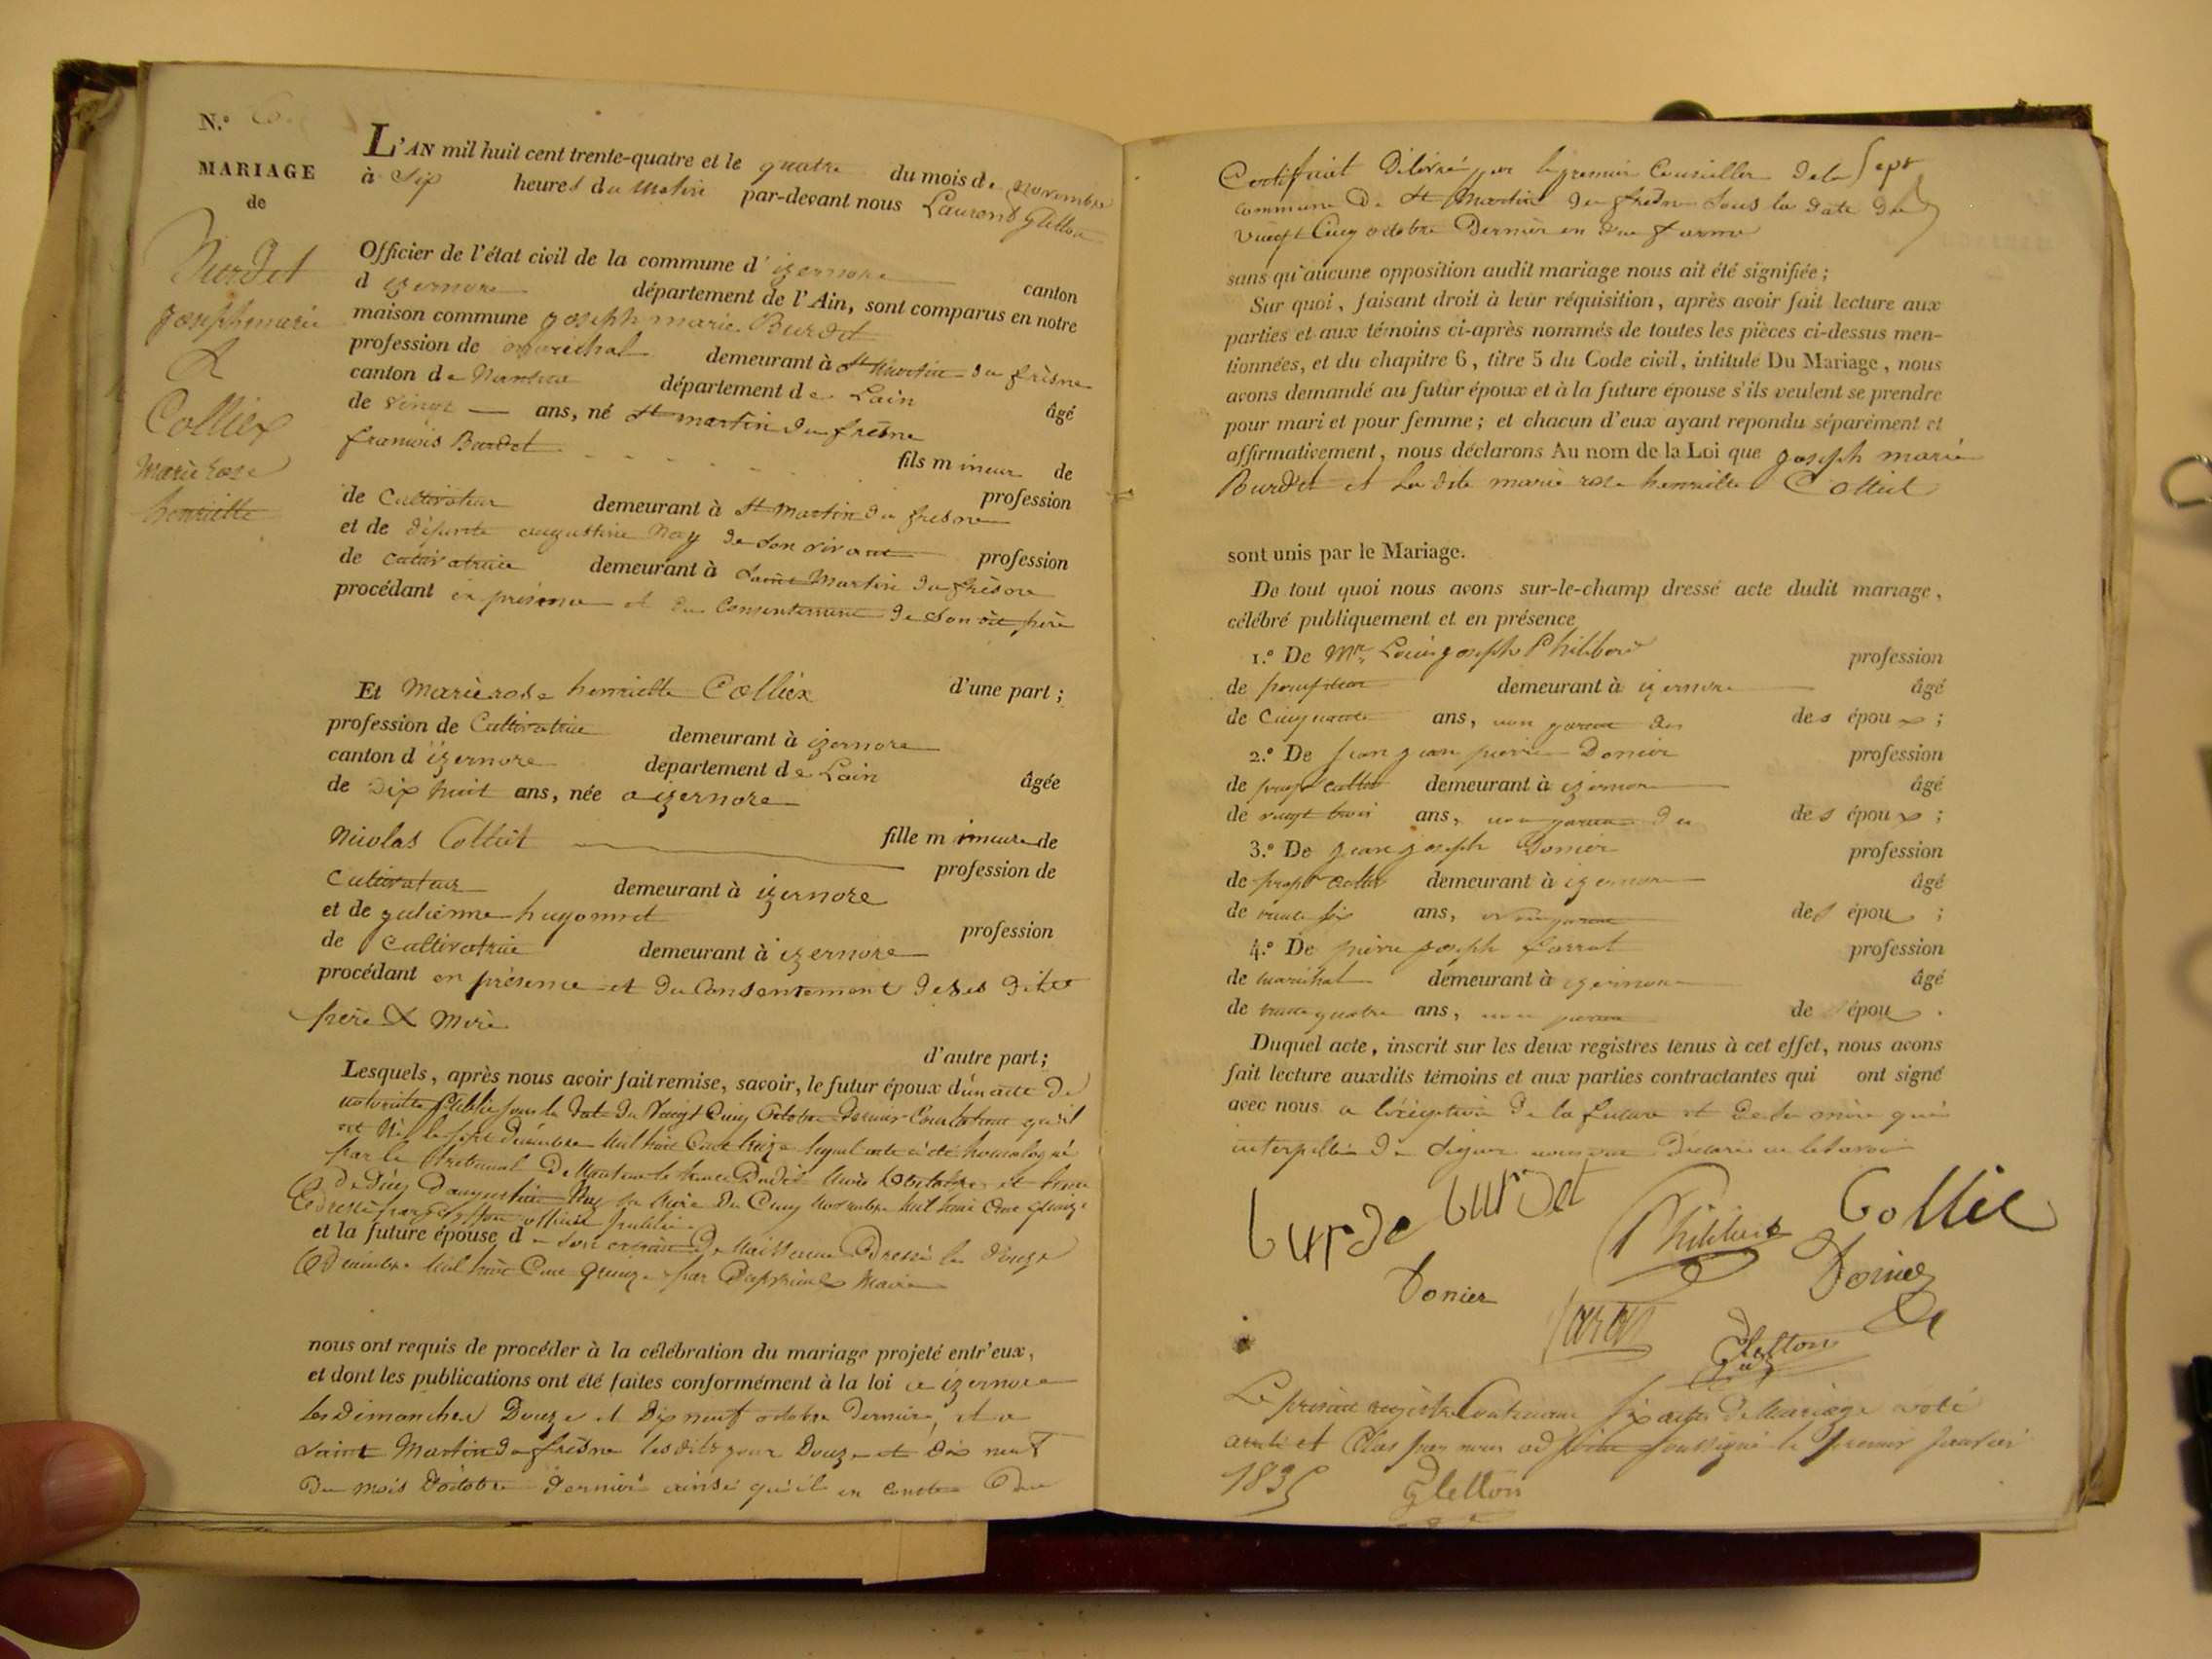 N.º 6
MARIAGE
de
Burdet
joseph marie
&
Colliex
Marie rose
henriette
L'AN mil huit cent trente-quatre et le quatre du mois de novembre
à Six heures du Matin par-devant nous Laurent Gletton
Officier de l'état civil de la commune d'izernore canton
d izernore département de l'Ain, sont comparus en notre
maison commune joseph marie Burdet
profession de maréchal demeurant à St Martin du frêsne
canton de Nantua département de Lain âgé
de vingt ans, né St martin du fresne
francois Burdet fils mineur de
profession
de Cultivateur demeurant à St Martin du fresne
et de défunte augustine Nay de son vivant profession
de cultivatrice demeurant à Saint Martin du frêsne
procédant en présence et du Consentement de son dit père
d'une part ;
Et Marie rose henriette Colliex
profession de Cultivatrice demeurant à izernore
canton d izernore département de Lain âgée
de dix huit ans, née a izernore
Nicolas Colliet fille mineure de
profession de
Cultivateur demeurant à izernore
et de julienne hugonnet profession
de Cultivatrice demeurant à izernore
procédant en présence et du Consentement de ses dits
père & Mère
d'autre part ;
Lesquels, après nous avoir fait remise, savoir, le futur époux d'un acte de
notoriété Publie sous la date du Vingt Cinq Octobre dernier Constatant qu'il
est Né le sept décembre Mil huit Cent treize lequel acte à été homologué
par le Tribunal De Nantua le trente Dudit Mois
de d'augustine Nay sa Mère du Cinq Novembre Mil huit Cent quinze
officier public
et la future épouse de son extrait de Naissance Dressé le douze
Décembre Mil huit Cent quinze par Maire
nous ont requis de procéder à la célébration du mariage projeté entr'eux,
et dont les publications ont été faites conformément à la loi a izernore
les dimanches Douze et Dix neuf octobre dernier, et a
Saint Martin du frêsne les dits jour Douze et dix neuf
du mois d'octobre dernier ainsi qu'il en conste du
Certificat Délivré par le premier Conseiller de la Sept
commune de St Martin du frêsne sous la date du
vingt Cinq octobre Dernier en due forme
sans qu'aucune opposition audit mariage nous ait été signifiée ;
Sur quoi, faisant droit à leur réquisition, après avoir fait lecture aux
parties et aux témoins ci-après nommés de toutes les pièces ci-dessus men-
tionnées, et du chapitre 6, titre 5 du Code civil, intitulé Du Mariage, nous
avons demandé au futur époux et à la future épouse s'ils veulent se prendre
pour mari et pour femme ; et chacun d'eux ayant repondu séparément et
affirmativement, nous déclarons Au nom de la Loi que joseph marie
Burdet et La dite marie rose henriette Colliet
sont unis par le Mariage.
De tout quoi nous avons sur-le-champ dressé acte dudit mariage,
célébré publiquement et en présence
1.º De Mr. Louis joseph Philibert profession
de demeurant à izernore âgé
de Cinquante ans, non parent des des époux ;
2.º De jean pierre Donier profession
de propr cultr demeurant à izernore âgé
de vingt trois ans, non parent des époux ;
3.º De jean joseph Donier profession
de propr cultr demeurant à izernore âgé
de trente six ans, non parent des époux ;
4.º De pierre joseph profession
de maréchal demeurant à izernore âgé
de trente quatre ans, non parent des épou .
Duquel acte, inscrit sur les deux registres tenus à cet effet, nous avons
fait lecture auxdits témoins et aux parties contractantes qui ont signé
avec nous a l'exception de la future et de la mère qui
interpellée de signer nous ont Déclaré ne le savoir
burde burdet Philibert Collie
Donier Donier
Gletton
Le présent registre Contenant six actes De Mariage a été
arrêté et Clos par nous adjoint soussigné le premier janvier
1835 Gletton